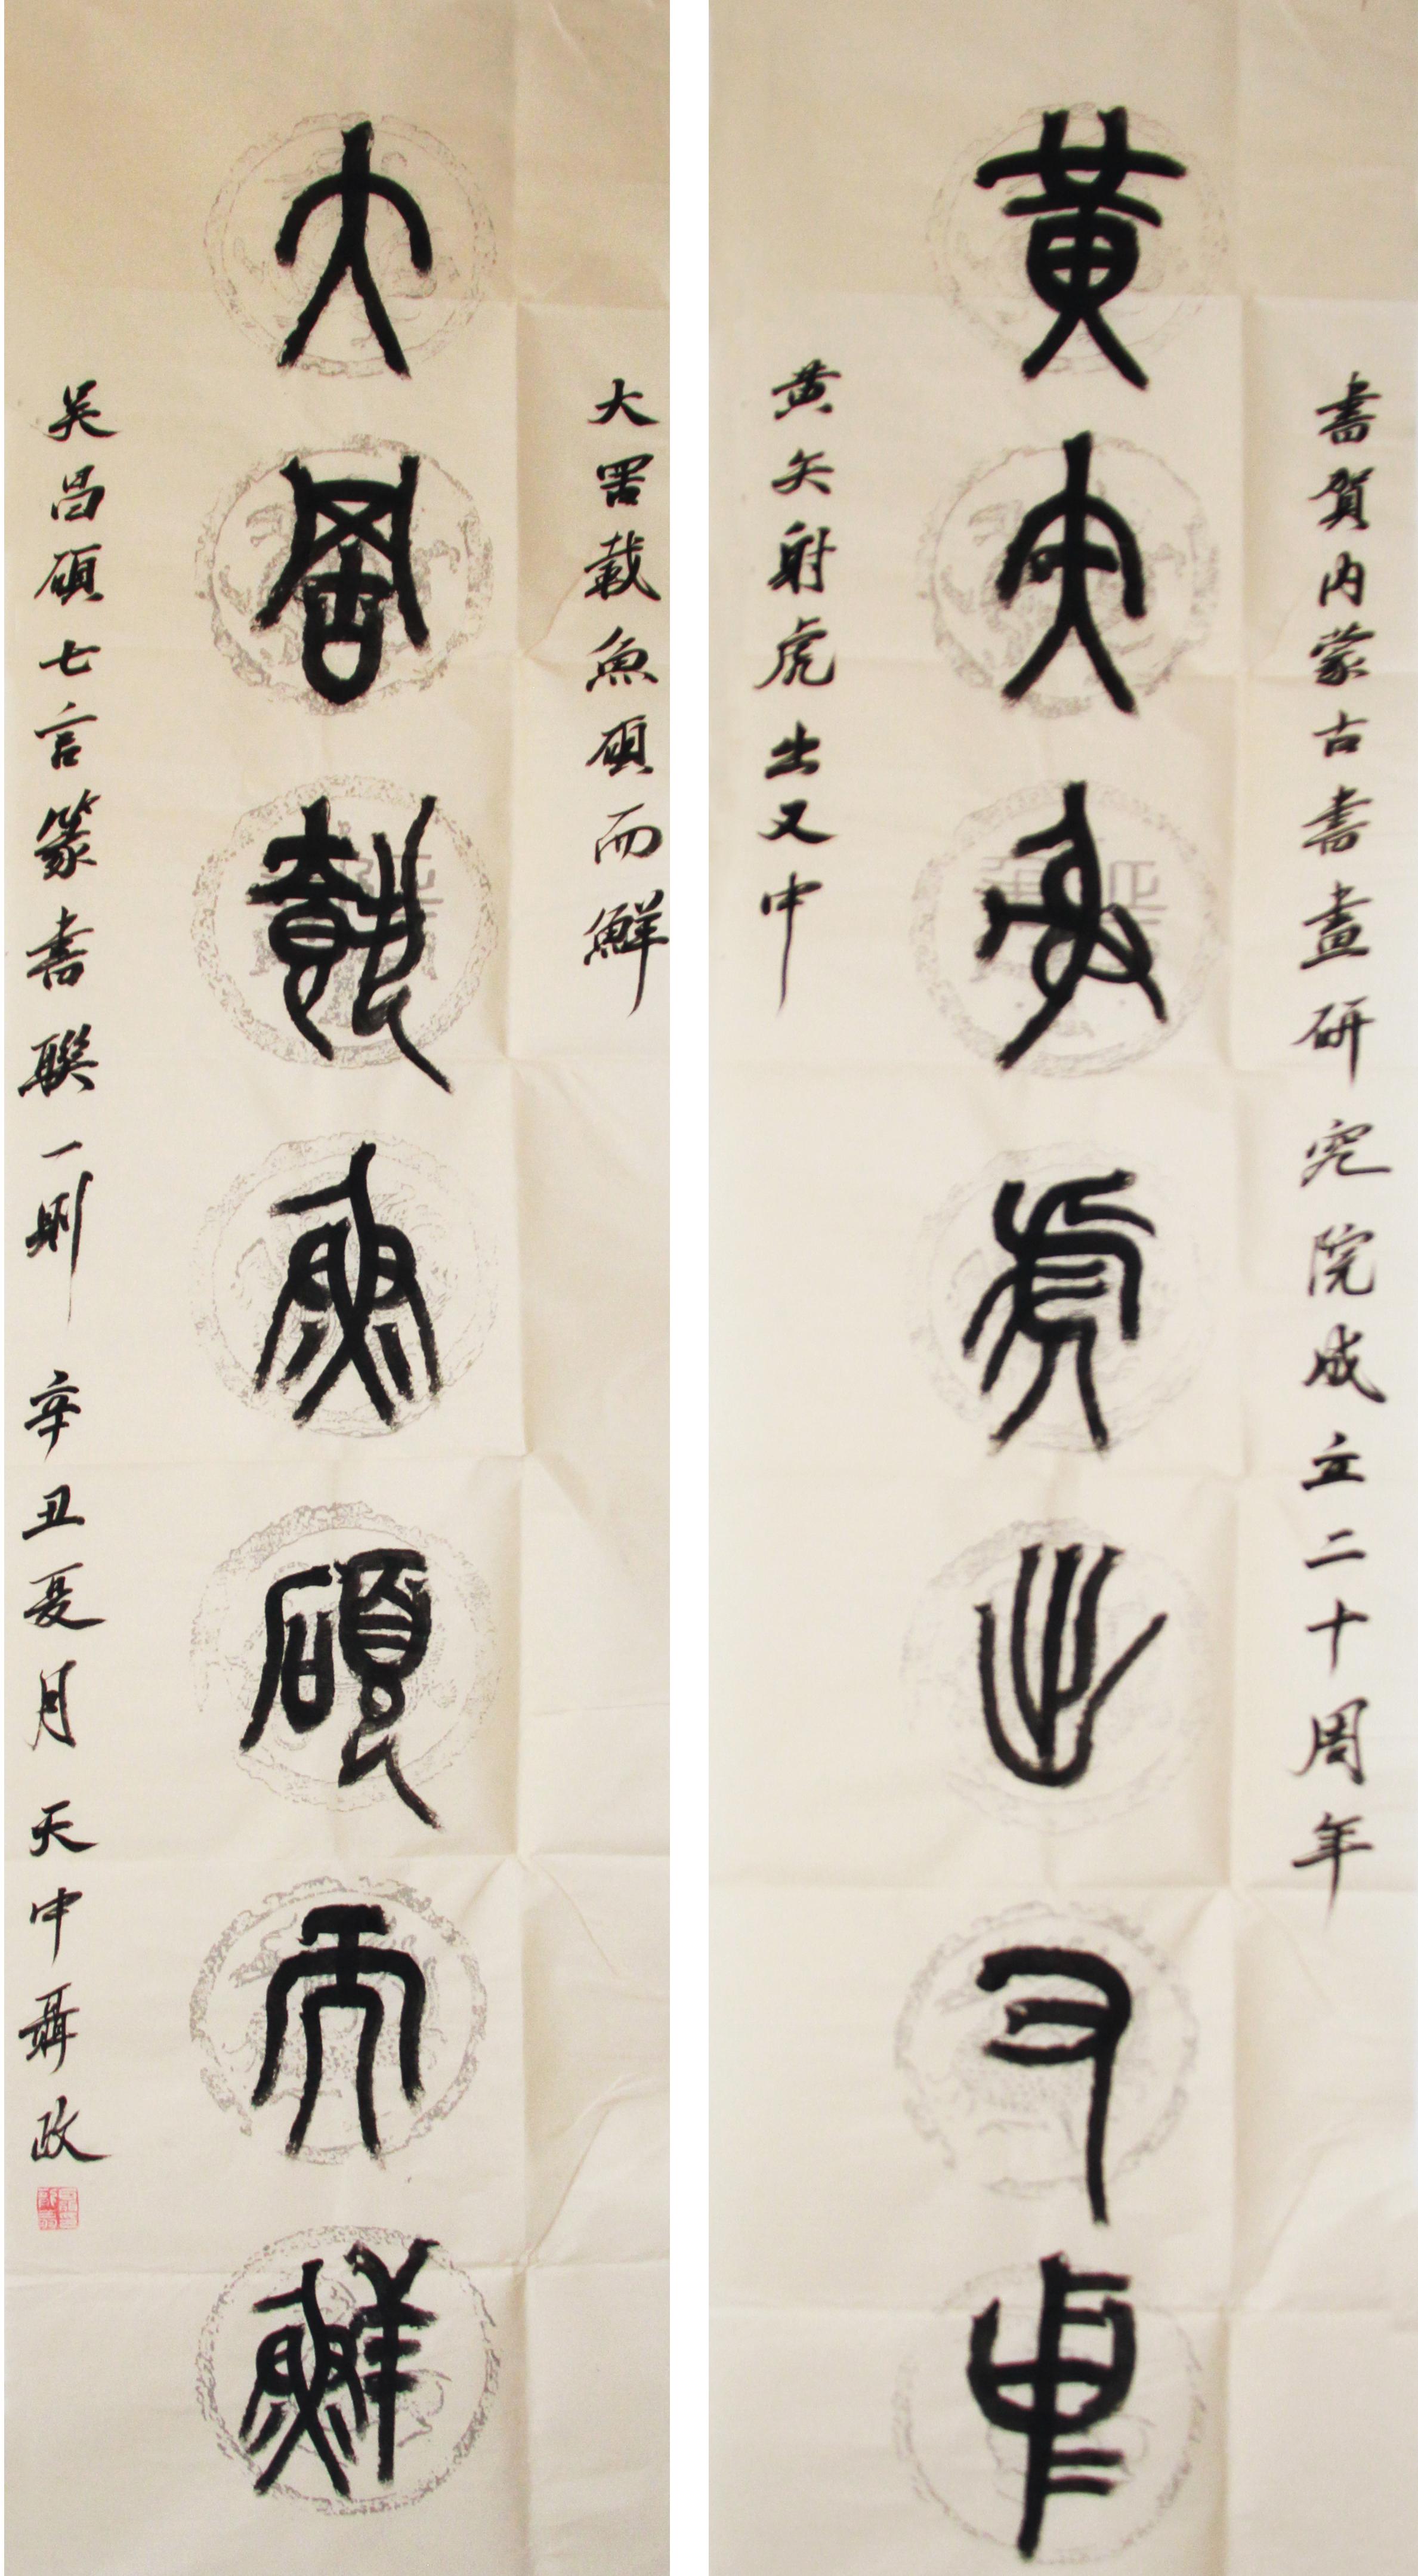 書賀内蒙古書畫研究院成立二十周年
黄矢射虎出又中
黄矢射虎出又中
大罟載魚碩而鮮
大罟載魚碩而鮮
吴昌碩七言篆書联一则 辛丑夏月 天中聶政